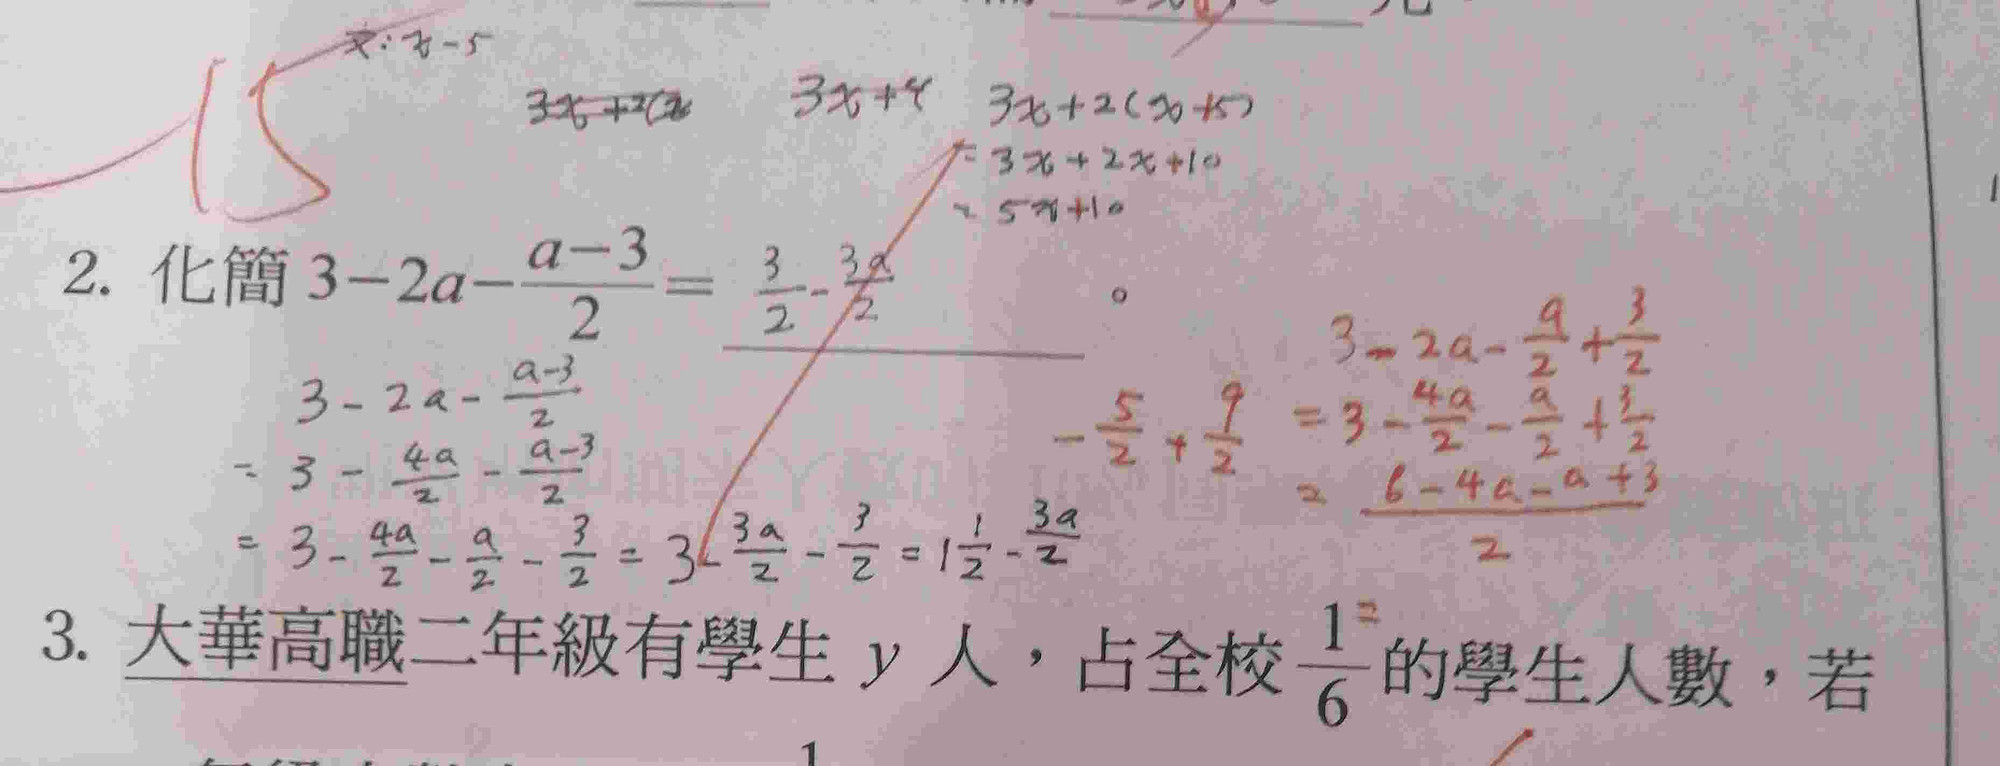 x: x-5
3x+2(x
3x+4
3x+2(x+5)
= 3x+2x+10
= 5x+10
15
2. 化簡 3-2a-\frac{a-3}{2} = \frac{3}{2}-\frac{3a}{2} 。
3-2a-\frac{a-3}{2}
= 3-\frac{4a}{2}-\frac{a-3}{2}
= 3-\frac{4a}{2}-\frac{a}{2}-\frac{3}{2} = 3-\frac{3a}{2}-\frac{3}{2} = 1\frac{1}{2}-\frac{3a}{2}
-\frac{5}{2}+\frac{9}{2}
3-2a-\frac{a}{2}+\frac{3}{2}
= 3-\frac{4a}{2}-\frac{a}{2}+\frac{3}{2}
= \frac{6-4a-a+3}{2}
=
3. 大華高職二年級有學生 y 人,占全校\frac{1}{6}的學生人數,若